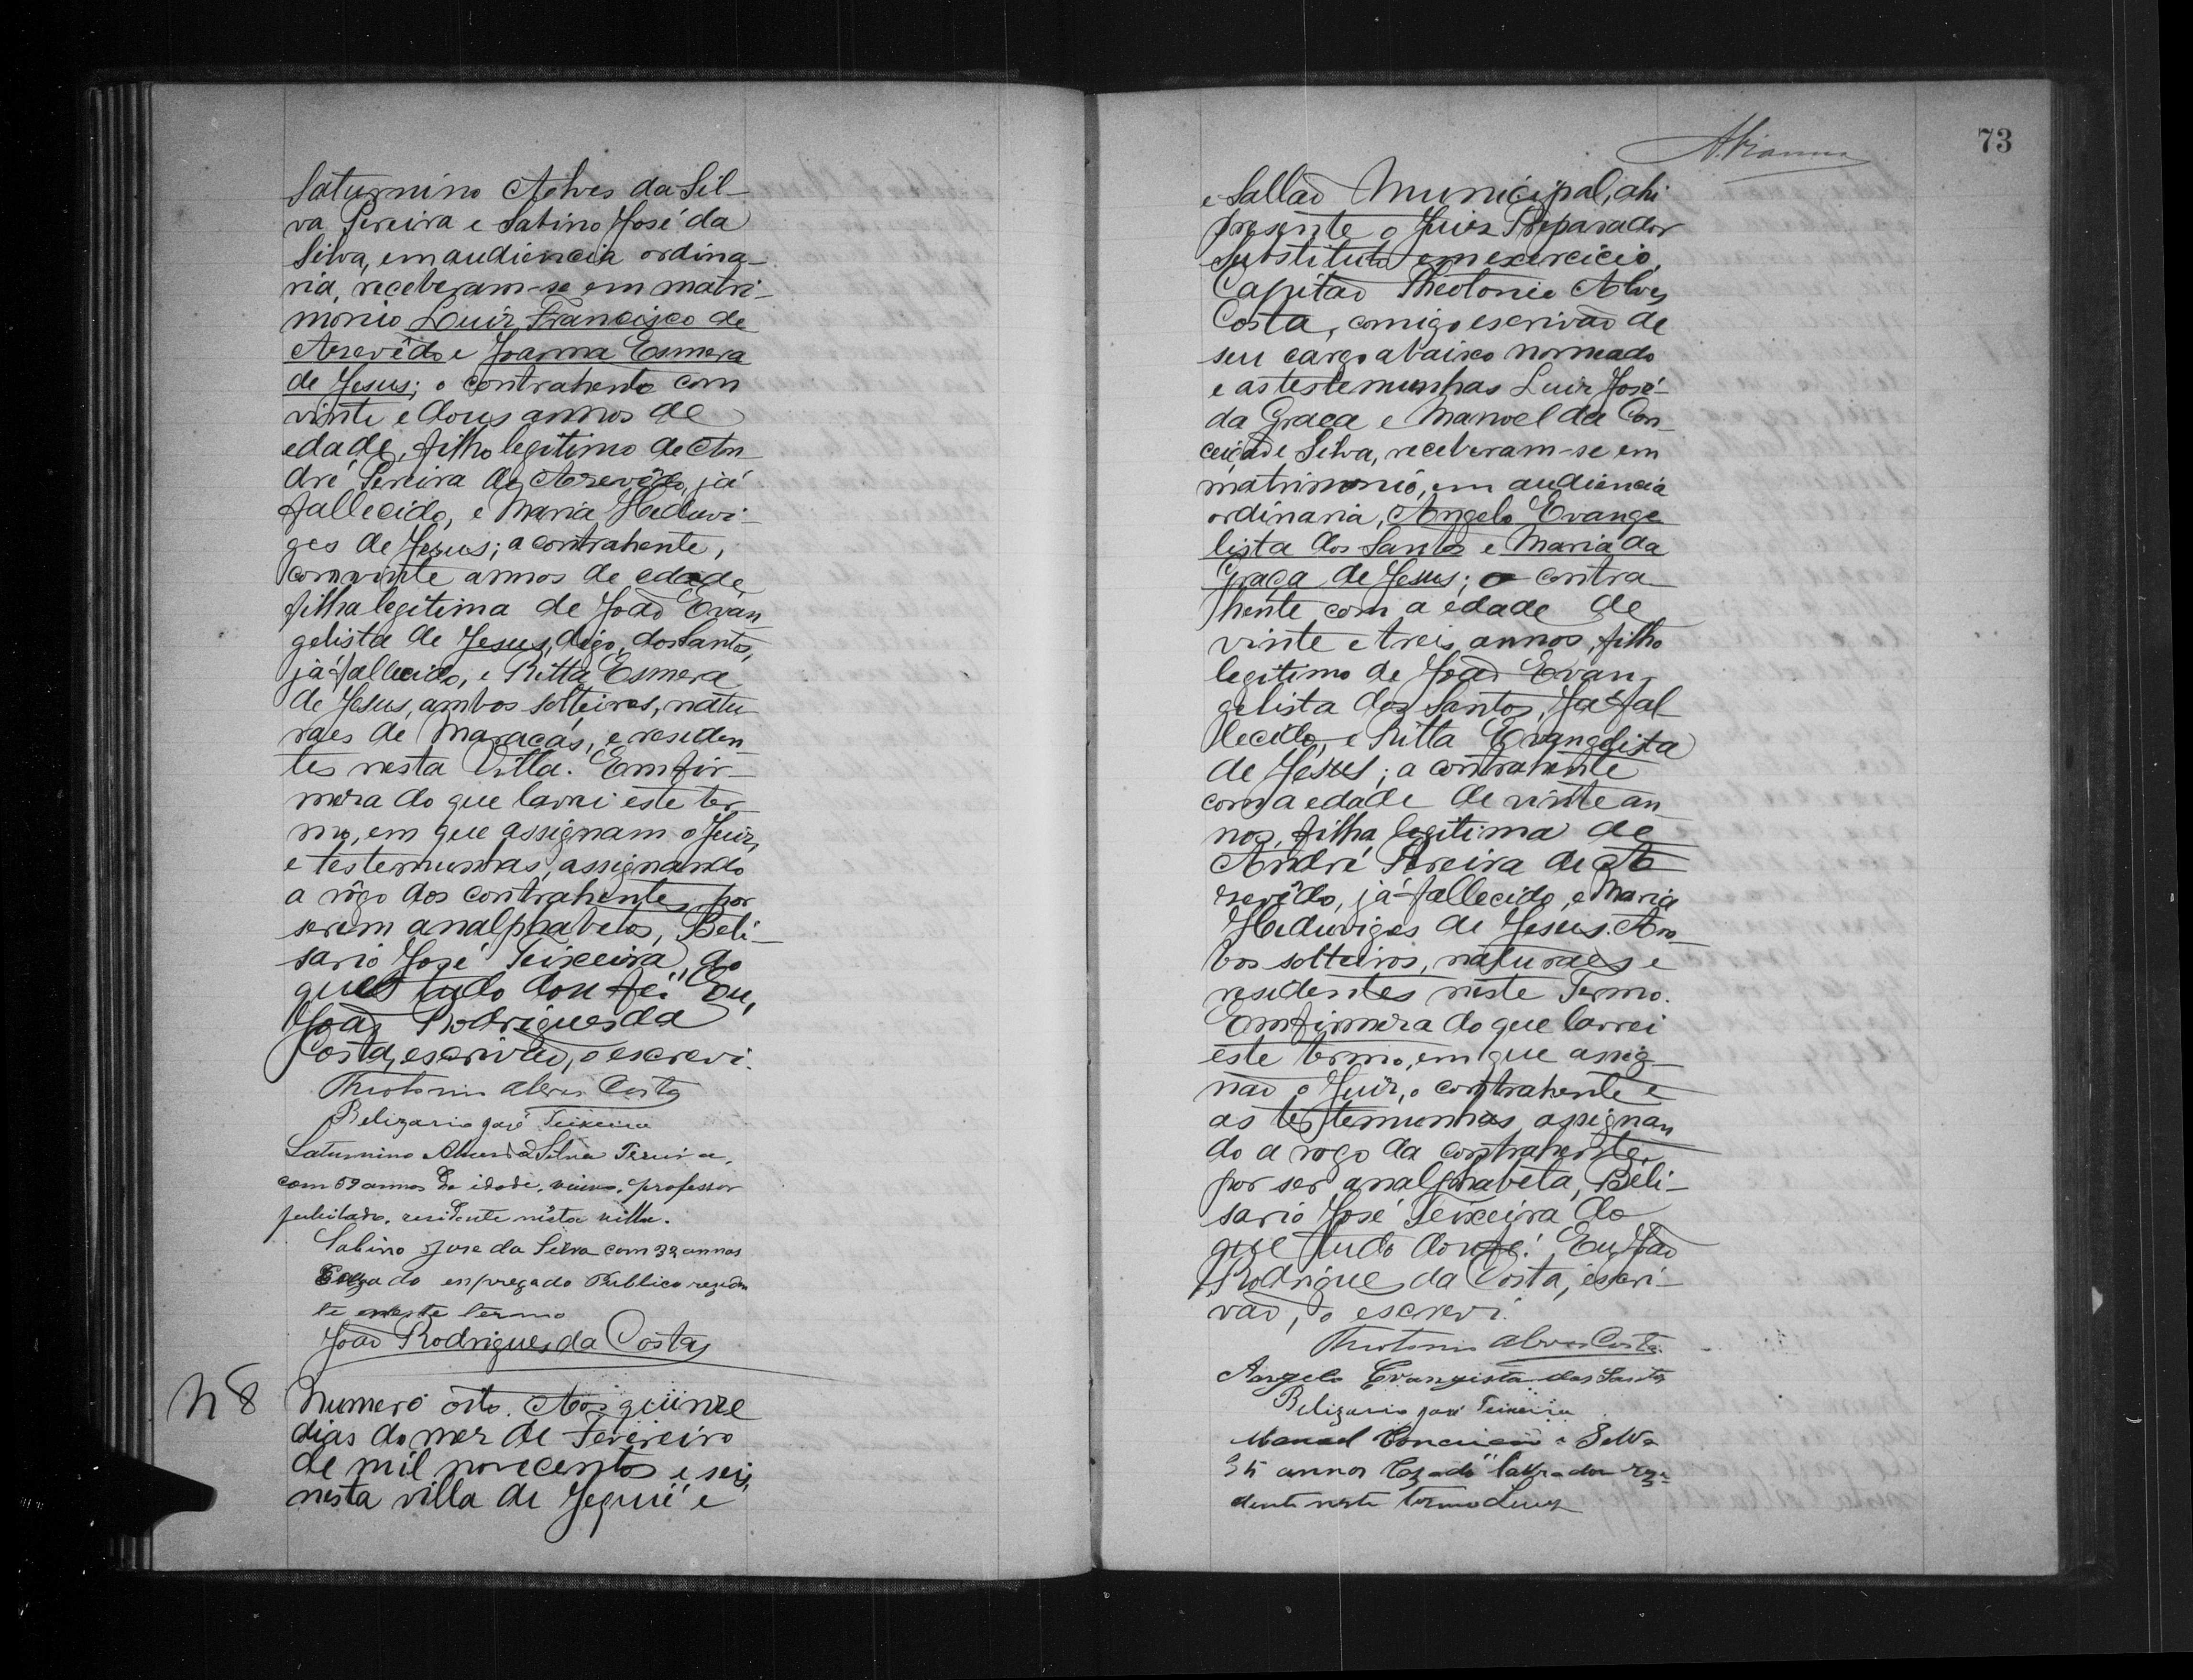 Saturnino Alves da Sil-
va Pereira e Sabino José da
Silva, em audiencia ordina-
ria, receberam-se em matri-
monio Luiz Francisco de
Azevêdo e Joanna Esmera
de Jesus; o contrahente com
vinte e dous annos de
edade, filho legitimo de An-
dré Pereira de Azevêdo, já
fallecido, e Maria Heduvi-
ges de Jesus; a contrahente,
com vinte annos de edade,
filha legitima de João Evan
gelista de Jesus, digo, dos Santos,
já fallecido, e Ritta Esmera
de Jesus, ambos solteiros, natu
raes de Maracás, e residen-
tes nesta Villa. Em fir-
meza do que lavrei este ter-
mo, em que assignam o Juiz,
e testemunhas, assignando
a rôgo dos contrahentes, por
serem analphabetos, Beli-
sario José Teixeira, do
que tudo dou fé. Eu,
João Rodrigues da
Costa, escrivão, o escrevi.
Theotonio Alves Costa
Belizario José Teixeira
Saturnino Alves da Silva Pereira,
com 59 annos de idade, viuvo, professor
jubilado, residente nésta villa.
Sabino Jose da Silva com 32 annos
Cazado enpregado Publico reziden
te neste termo
João Rodrigues da Costa
N 8
Numero oito. Aos quinze
dias do mez de Fevereiro
de mil novecentos e seis,
nesta villa de Jequié e
73
A. Vianna
e Sallão Municipal, ahi
presente o Juiz Preparador
Substituto em exercicio,
Capitão Theotonio Alves
Costa, comigo escrivão de
seu cargo abaixo nomeado
e as testemunhas Luiz José
da Graça e Manoel da Con-
ceição e Silva, receberam-se em
matrimonio, em audiencia
ordinaria, Angelo Evange
lista dos Santos e Maria da
Graça de Jesus; o contra-
hente com a edade de
vinte e treis annos, filho
legitimo de João Evan-
gelista dos Santos, já fal-
lecido, e Ritta Evangelista
de Jesus; a contrahente
com a edade de vinte an
nos, filha legitima de
André Pereira de A
zevêdo, já fallecido, e Maria
Heduviges de Jesus. Am-
bos solteiros, naturaes e
residentes neste Termo.
Em firmeza do que lavrei
este termo, em que assig-
não o Juiz, o contrahente e
as testemunhas, assignan
do a rogo da contrahente,
por ser analphabeta, Beli-
sario José Teixeira do
que tudo dou fé. Eu João
Rodrigues da Costa, escri-
vão, o escrevi.
Theotonio Alves Costa
Angelo Evangista dos Santos
Belizario José Teixeira
Manoel Conceicão e Silva
35 annos Cazado lavrador rezi-
dente neste termo Luiz